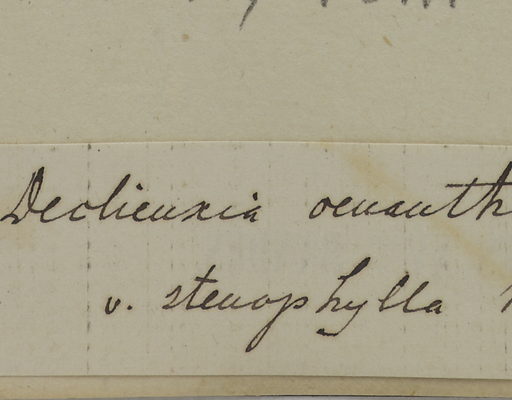 Declieuxia oenanth
v. stenophylla